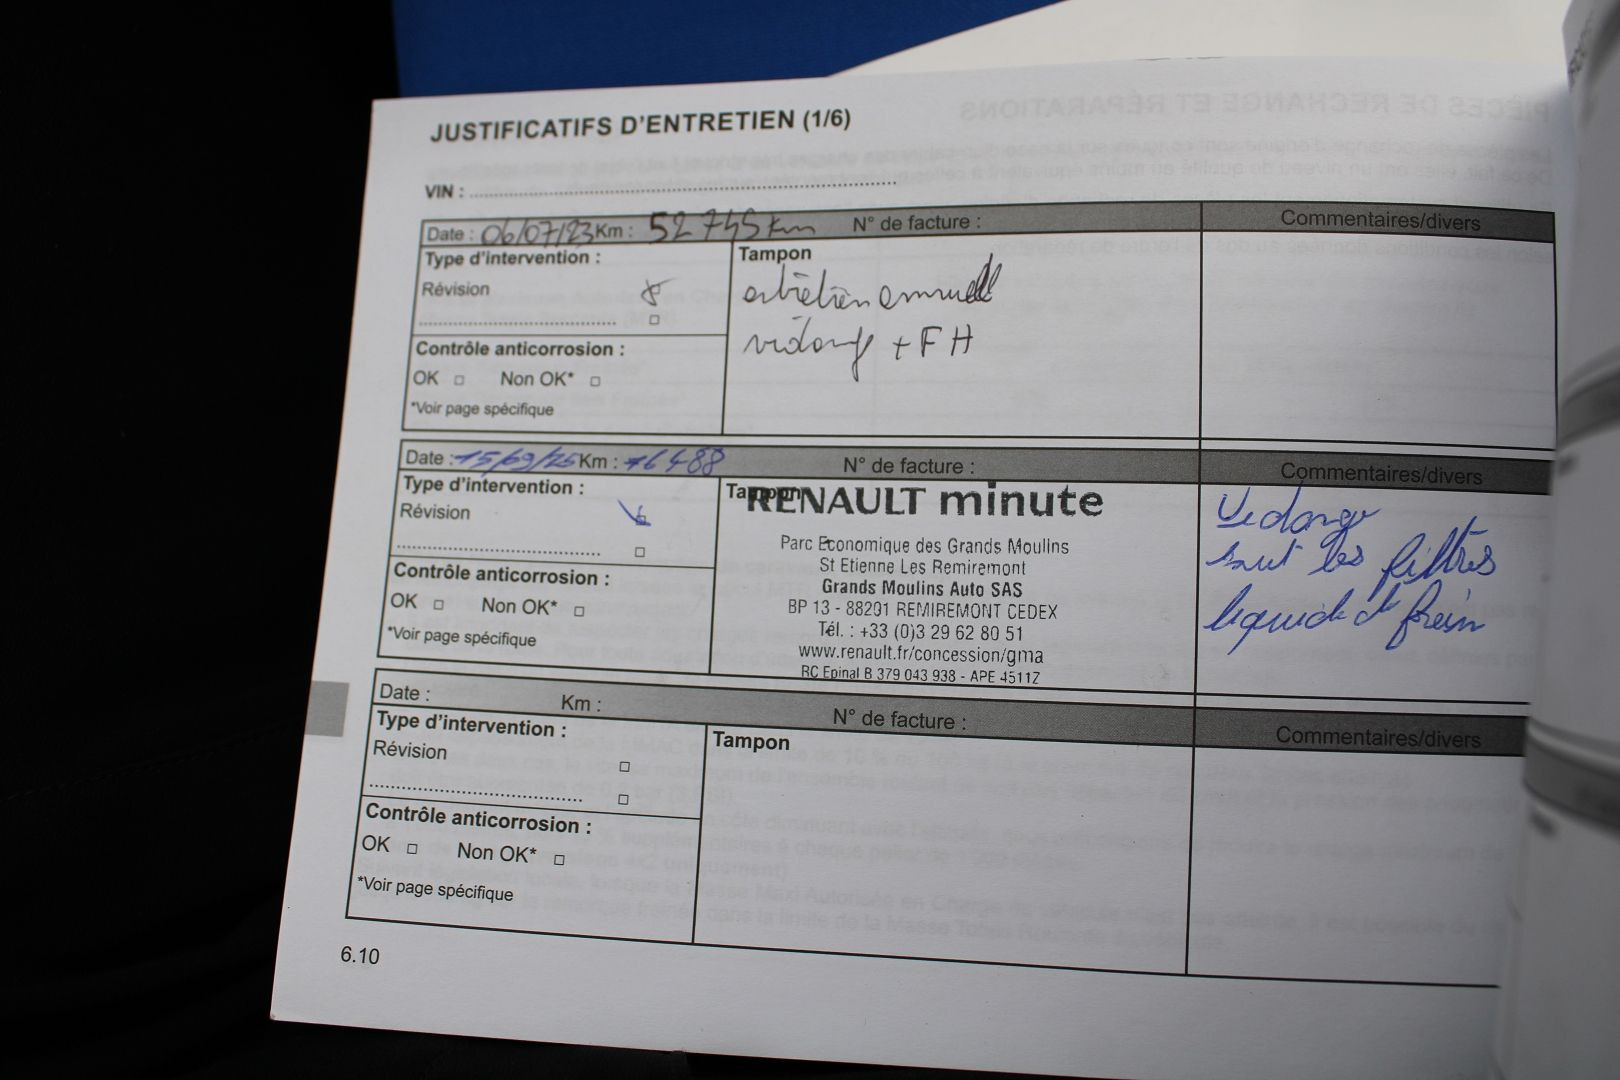 JUSTIFICATIFS D'ENTRETIEN (1/6)
VIN :
Date : 06/07/23 Km : 52 745 km N° de facture : Commentaires/divers
Type d'intervention :
Révision
Tampon
entretien annuel
vidange + FH
Contrôle anticorrosion :
OK □ Non OK* □
*Voir page spécifique
Date : 15/09/25 Km : 76488 N° de facture : Commentaires/divers
Type d'intervention :
Révision
Tampon
RENAULT minute
Parc Economique des Grands Moulins
St Etienne Les Remiremont
Grands Moulins Auto SAS
BP 13 - 88201 REMIREMONT CEDEX
Tél. : +33 (0)3 29 62 80 51
www.renault.fr/concession/gma
RC Epinal B 379 043 938 - APE 4511Z
Vidange
tout les filtres
liquide d frein
Contrôle anticorrosion :
OK □ Non OK* □
*Voir page spécifique
Date : Km : N° de facture : Commentaires/divers
Type d'intervention :
Révision □
Tampon
Contrôle anticorrosion :
OK □ Non OK* □
*Voir page spécifique
6.10